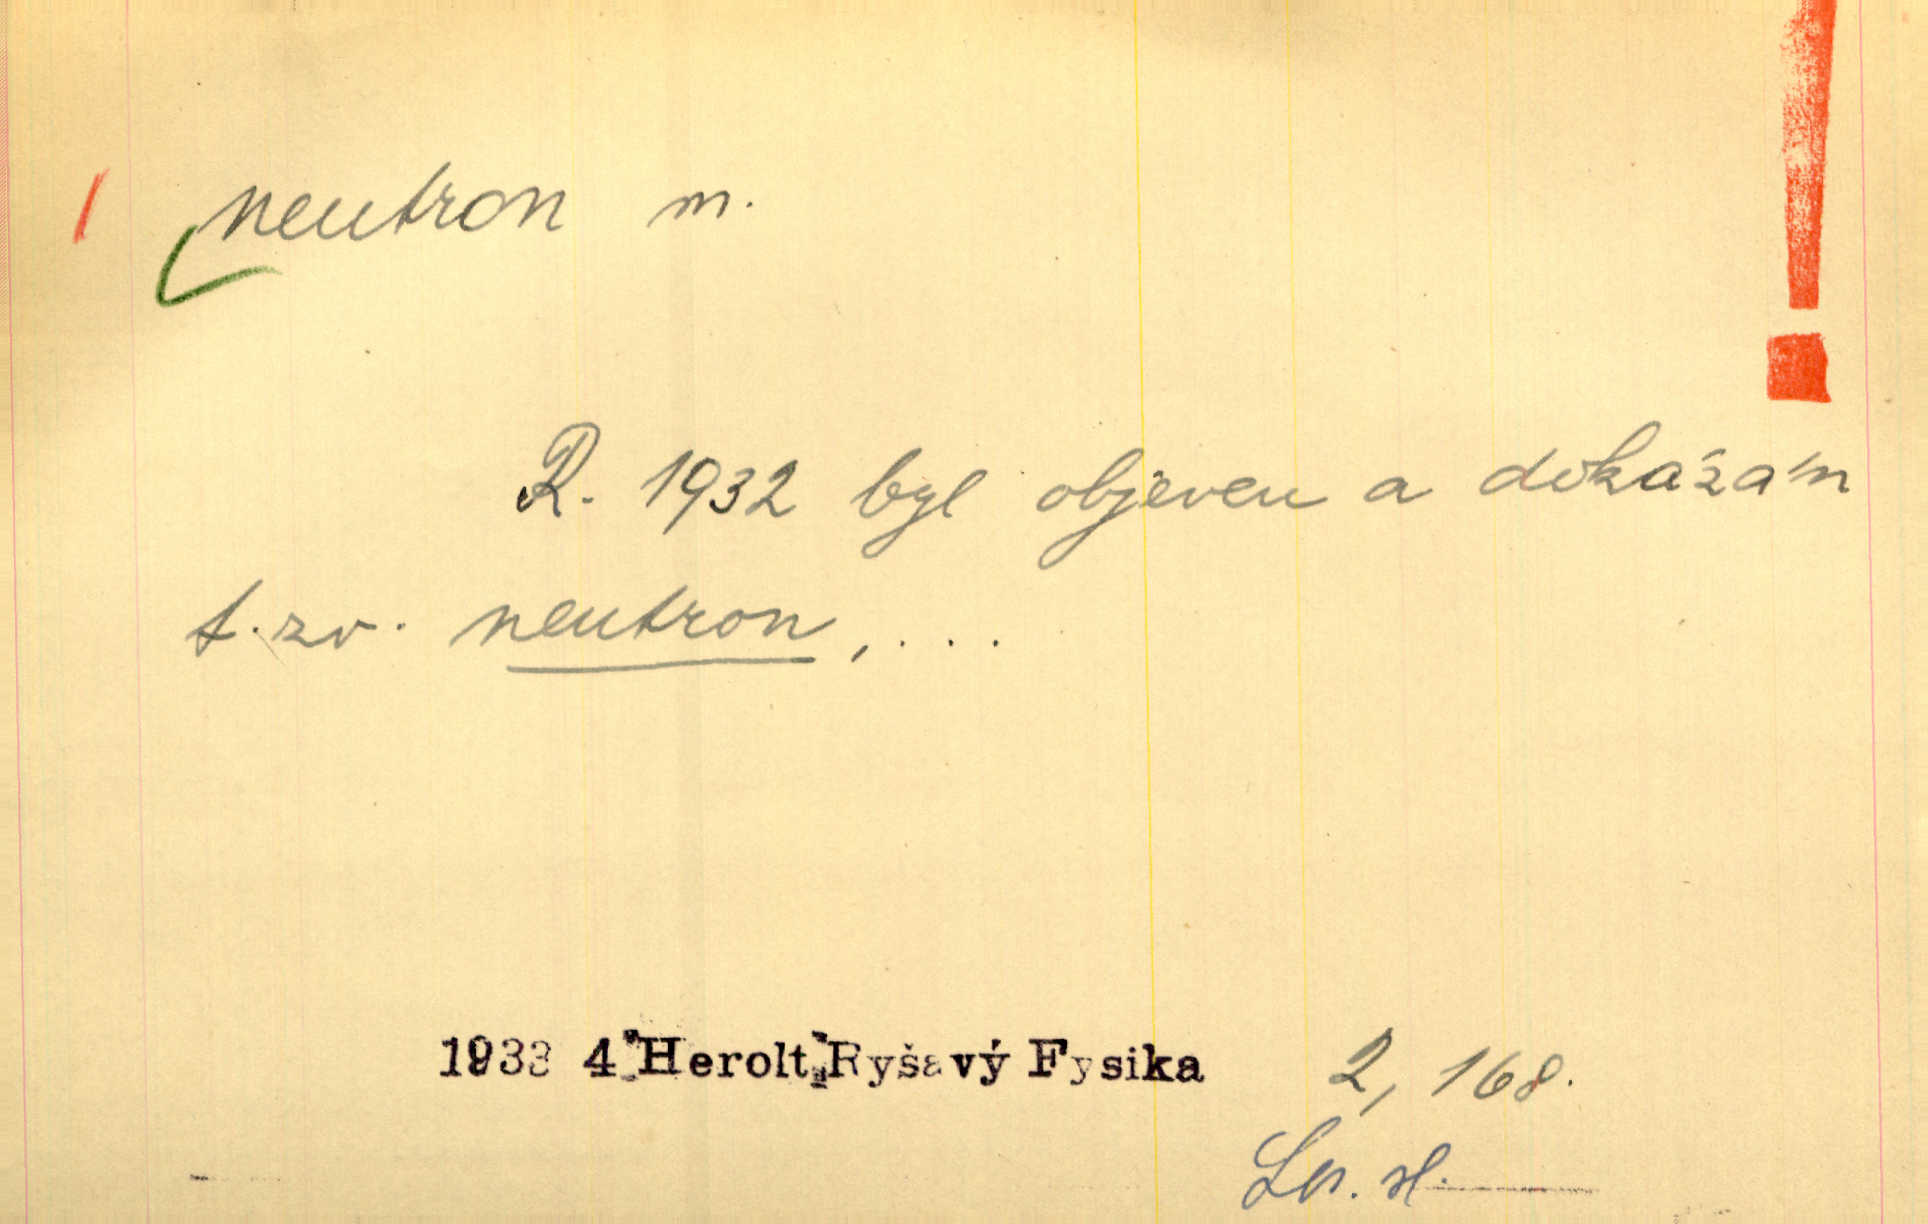 neutron m.
R. 1932 byl objeven a dokázán
t. zv. neutron, ...
1933 4 Herolt, Ryšavý Fysika 2, 168.